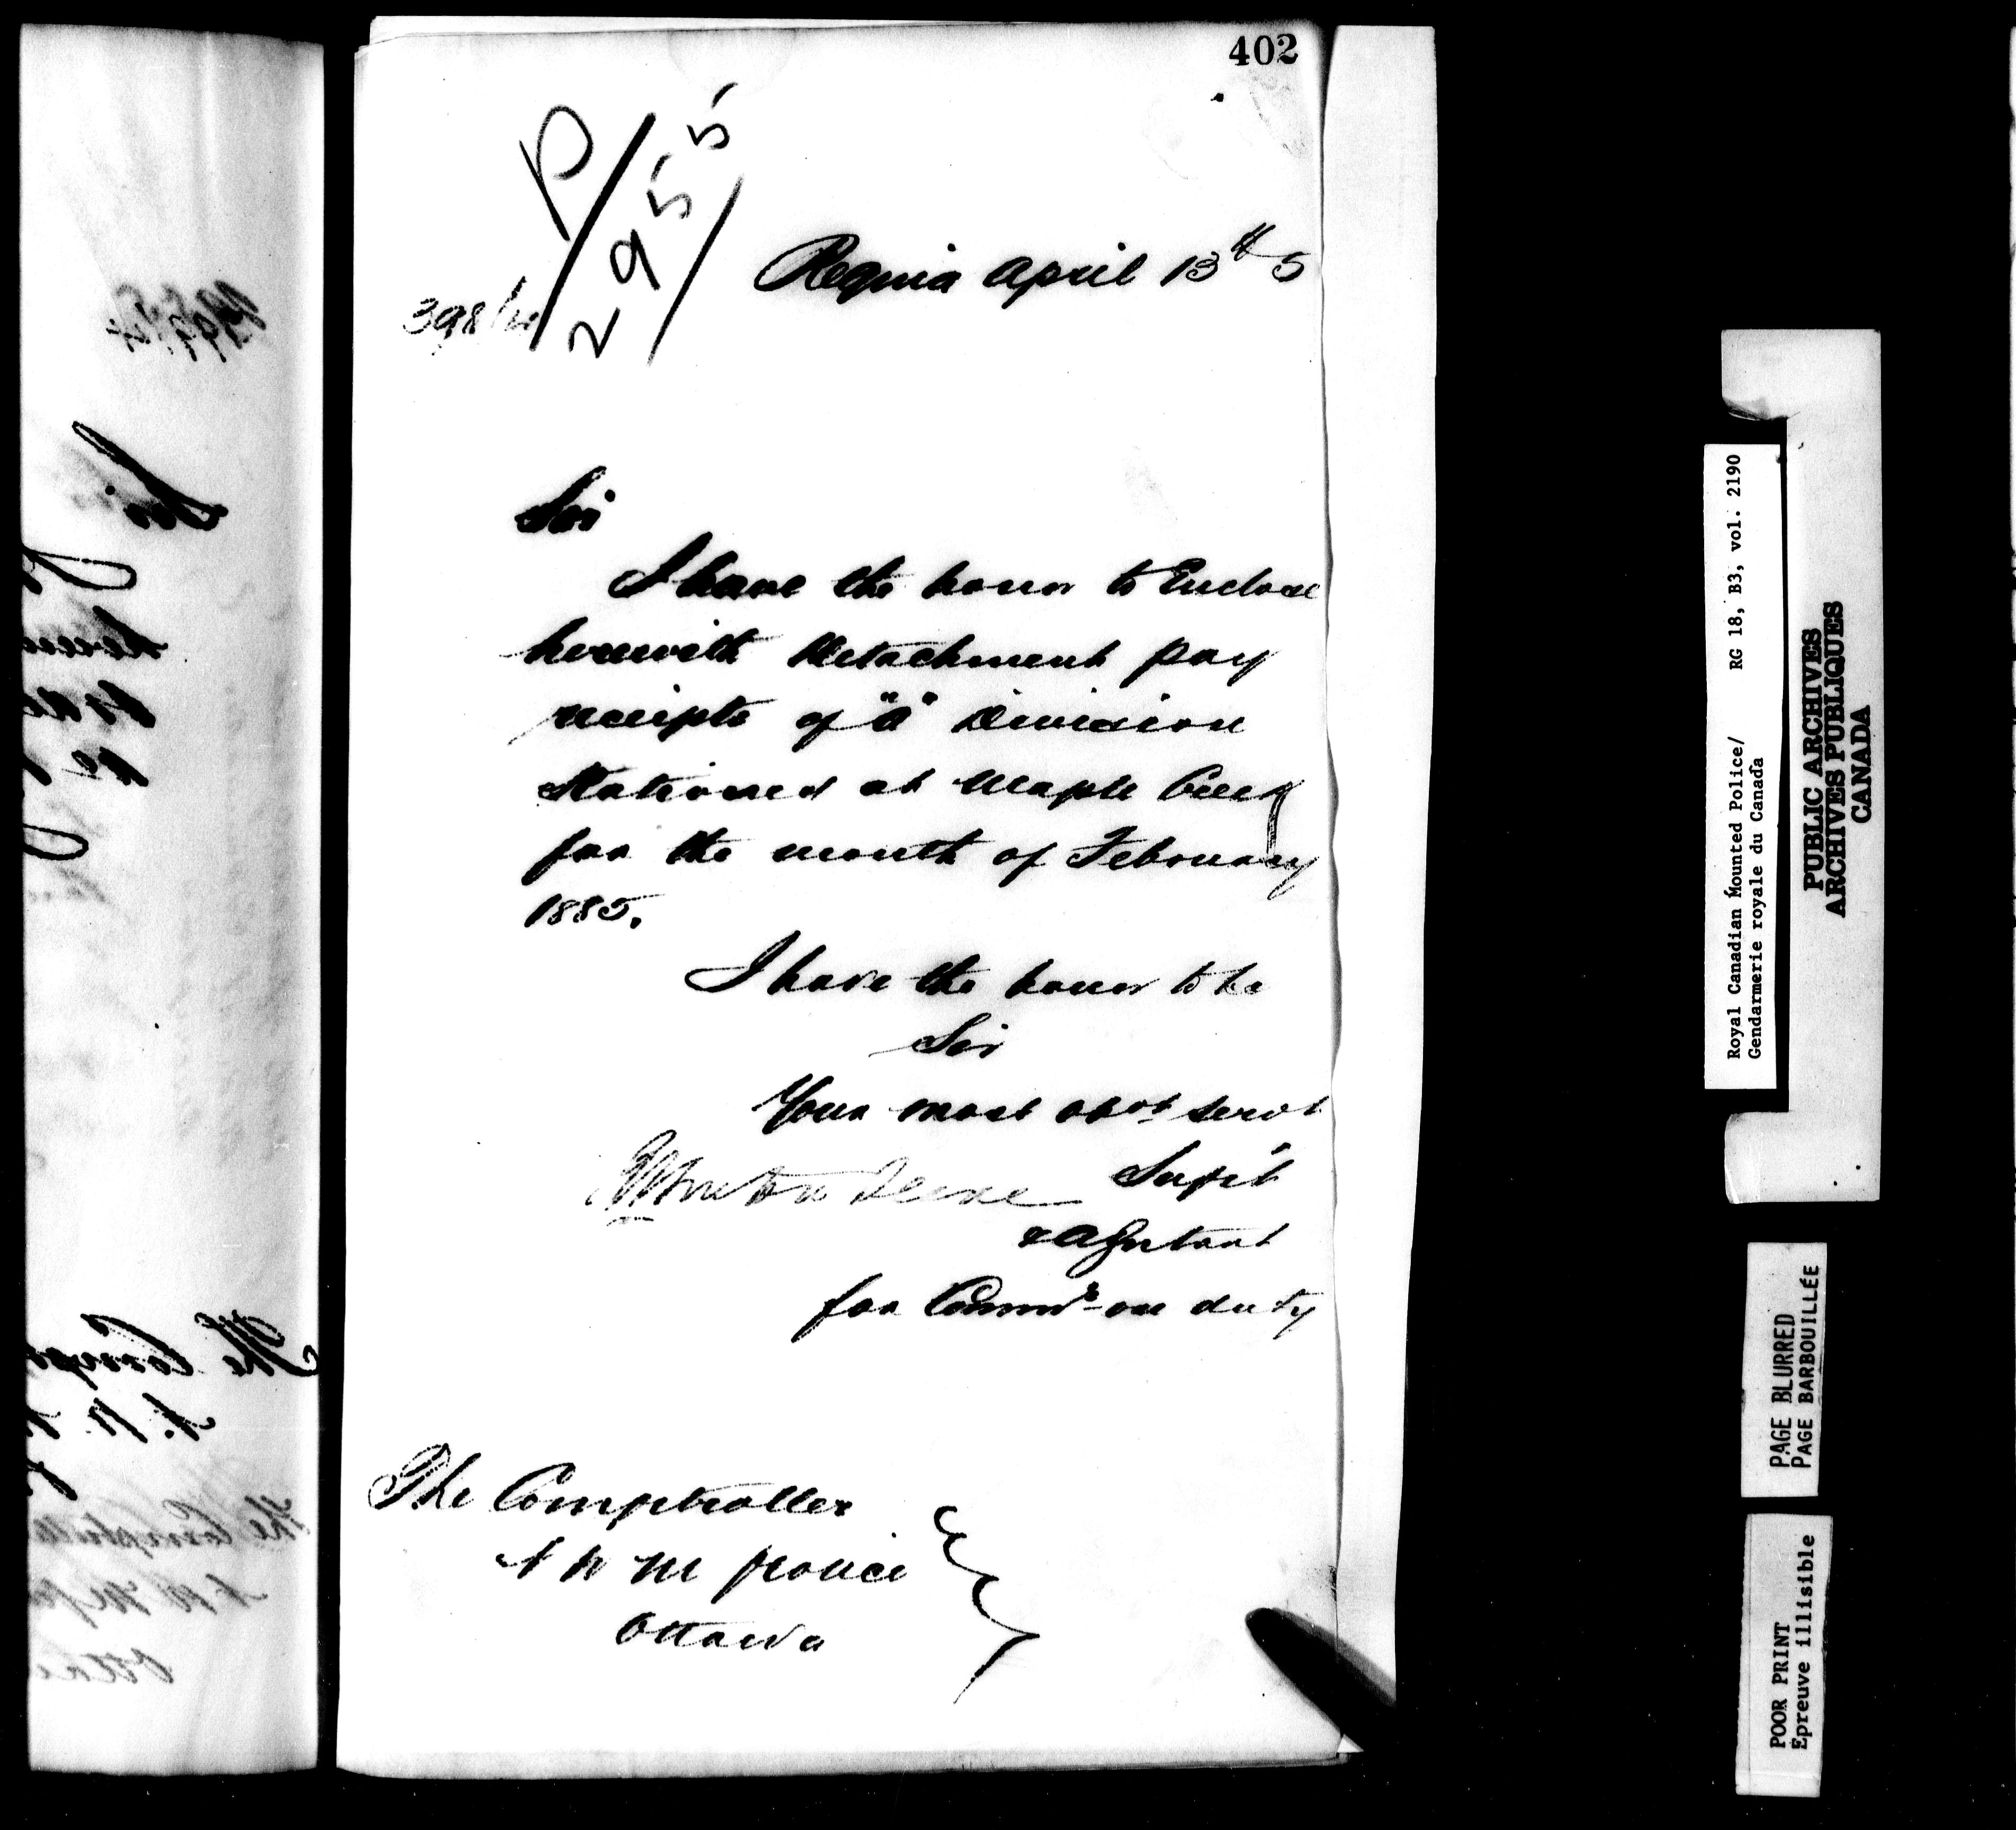 402
D
2955
398
Regina April 13th 5
Sir
I have the honor to Enclose
herewith Detachment pay
receipts of "A" Division
Stationed at Maple Creek
for the month of February
1885.
I have the honor to be
Sir
Your most obdt servt
RBurton Deane Supt
& Adjutant
for Commr on duty
The Comptroller
N W M Police
Ottawa
Royal Canadian Mounted Police/ RG 18, B3, vol. 2190
Gendarmerie royale du Canada
PUBLIC ARCHIVES
ARCHIVES PUBLIQUES
CANADA
PAGE BLURRED
PAGE BARBOUILLÉE
POOR PRINT
Épreuve illisible